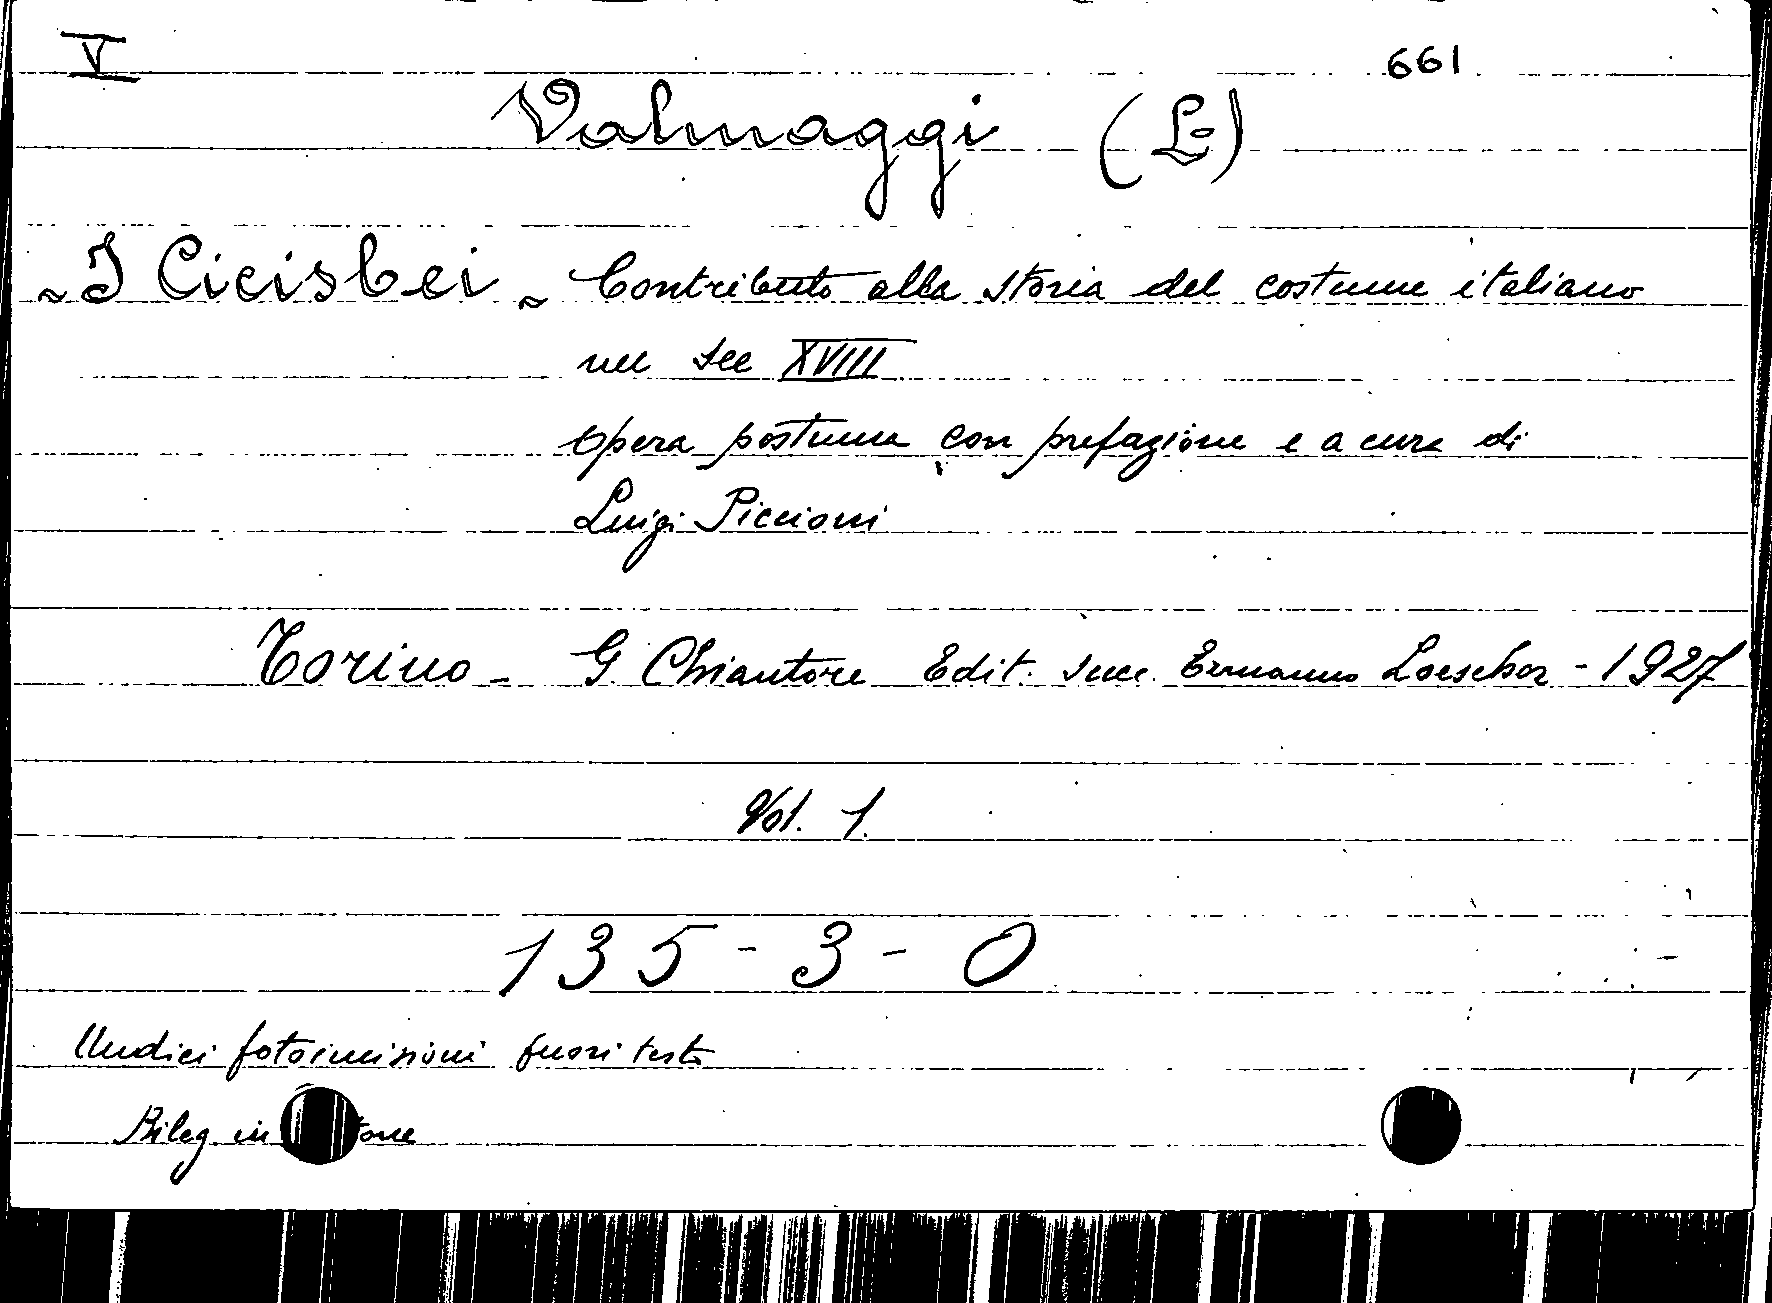 V 661
Valmaggi (L.)
"I Cicisbei" Contributo alla storia del costume italiano
nel sec XVIII
Opera postuma con prefazione e a cura di
Luigi Piccioni
Torino - G Chiantore Edit. succ. Ermanno Loescher - 1927
Vol. 1.
135 - 3 - 0
Undici fotoincisioni fuori testo
Rileg in